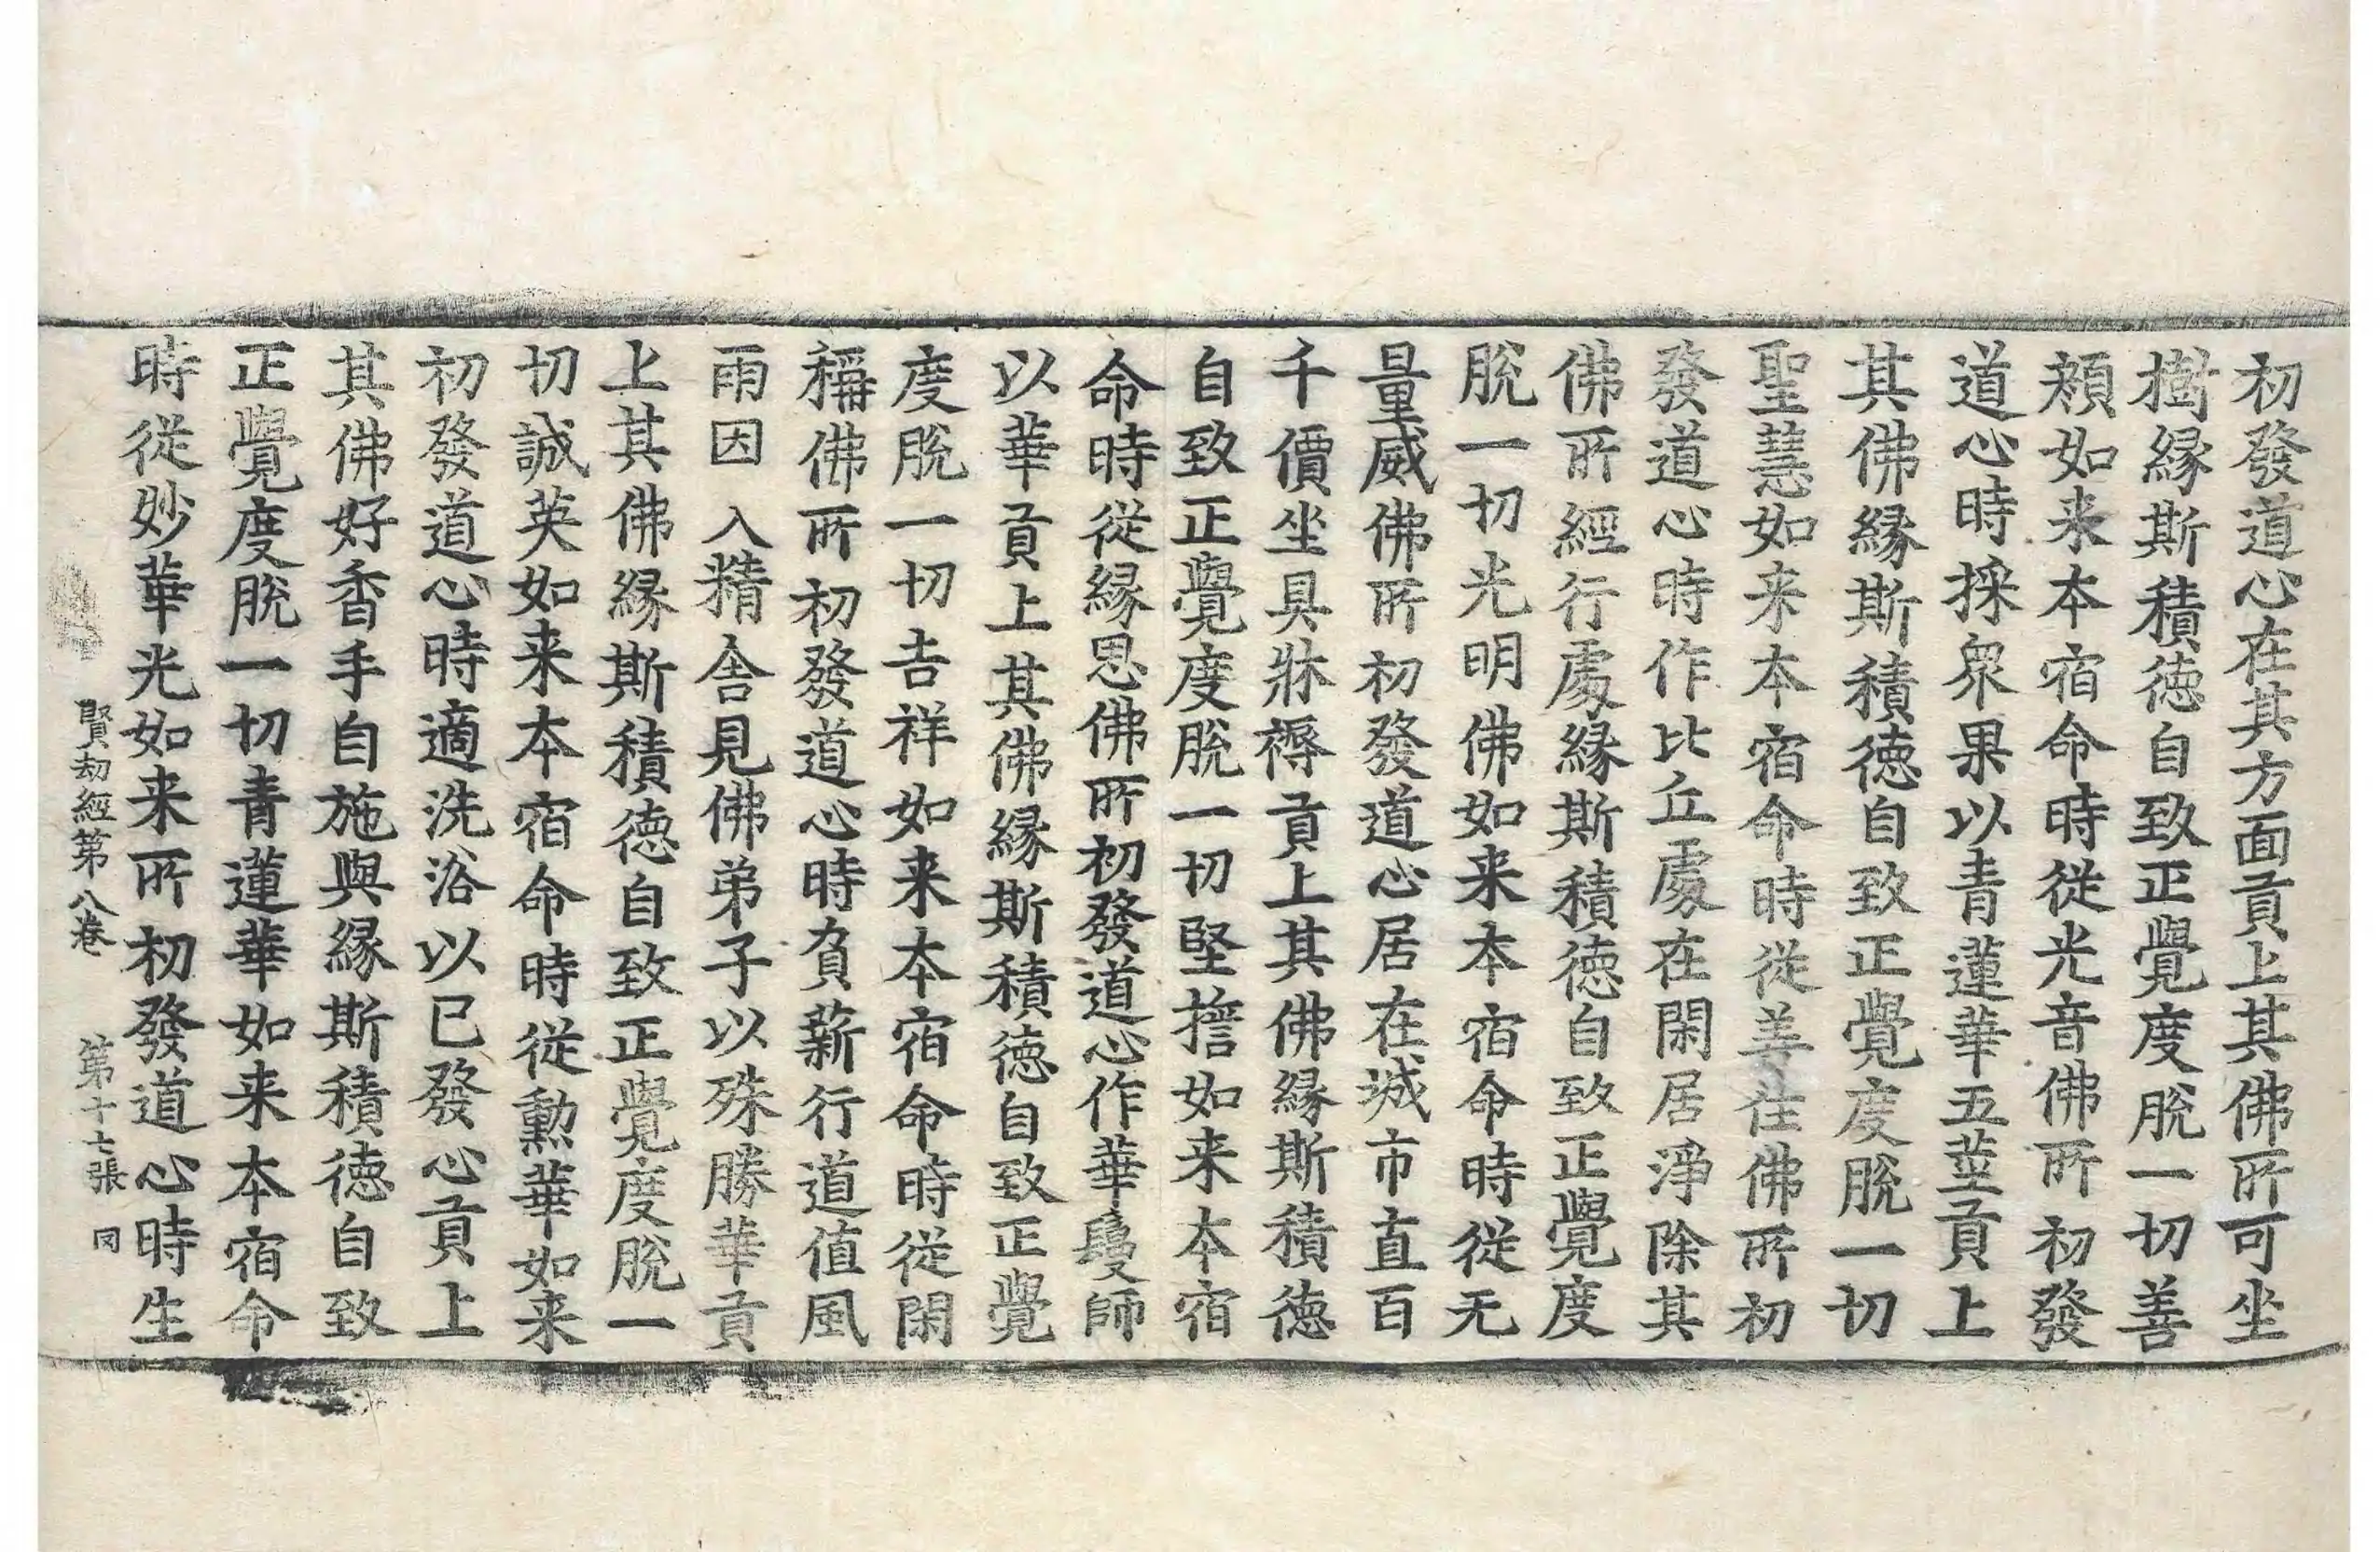 初發道心在其方面貢上其佛所可坐
樹緣斯積德自致正覺度脫一切善
頰如来本宿命時從光音佛所初發
道心時採衆果以青蓮華五莖貢上
其佛緣斯積德自致正覺度脫一切
聖慧如来本宿命時從善住佛所初
發道心時作比丘處在閑居淨除其
佛所經行處緣斯積德自致正覺度
脫一切光明佛如来本宿命時從无
量威佛所初發道心居在城市直百
千價坐具牀褥貢上其佛緣斯積德
自致正覺度脫一切堅擔如来本宿
命時從緣恩佛所初發道心作華鬘師
以華貢上其佛緣斯積德自致正覺
度脫一切吉祥如来本宿命時從閑
稱佛所初發道心時負薪行道值風
雨因入精舍見佛弟子以殊勝華貢
上其佛緣斯積德自致正覺度脫一
切誠英如来本宿命時從勳華如来
初發道心時適洗浴以已發心貢上
其佛好香手自施與緣斯積德自致
正覺度脫一切青蓮華如来本宿命
時從妙華光如来所初發道心時生
賢劫經第八卷 第十七張 同